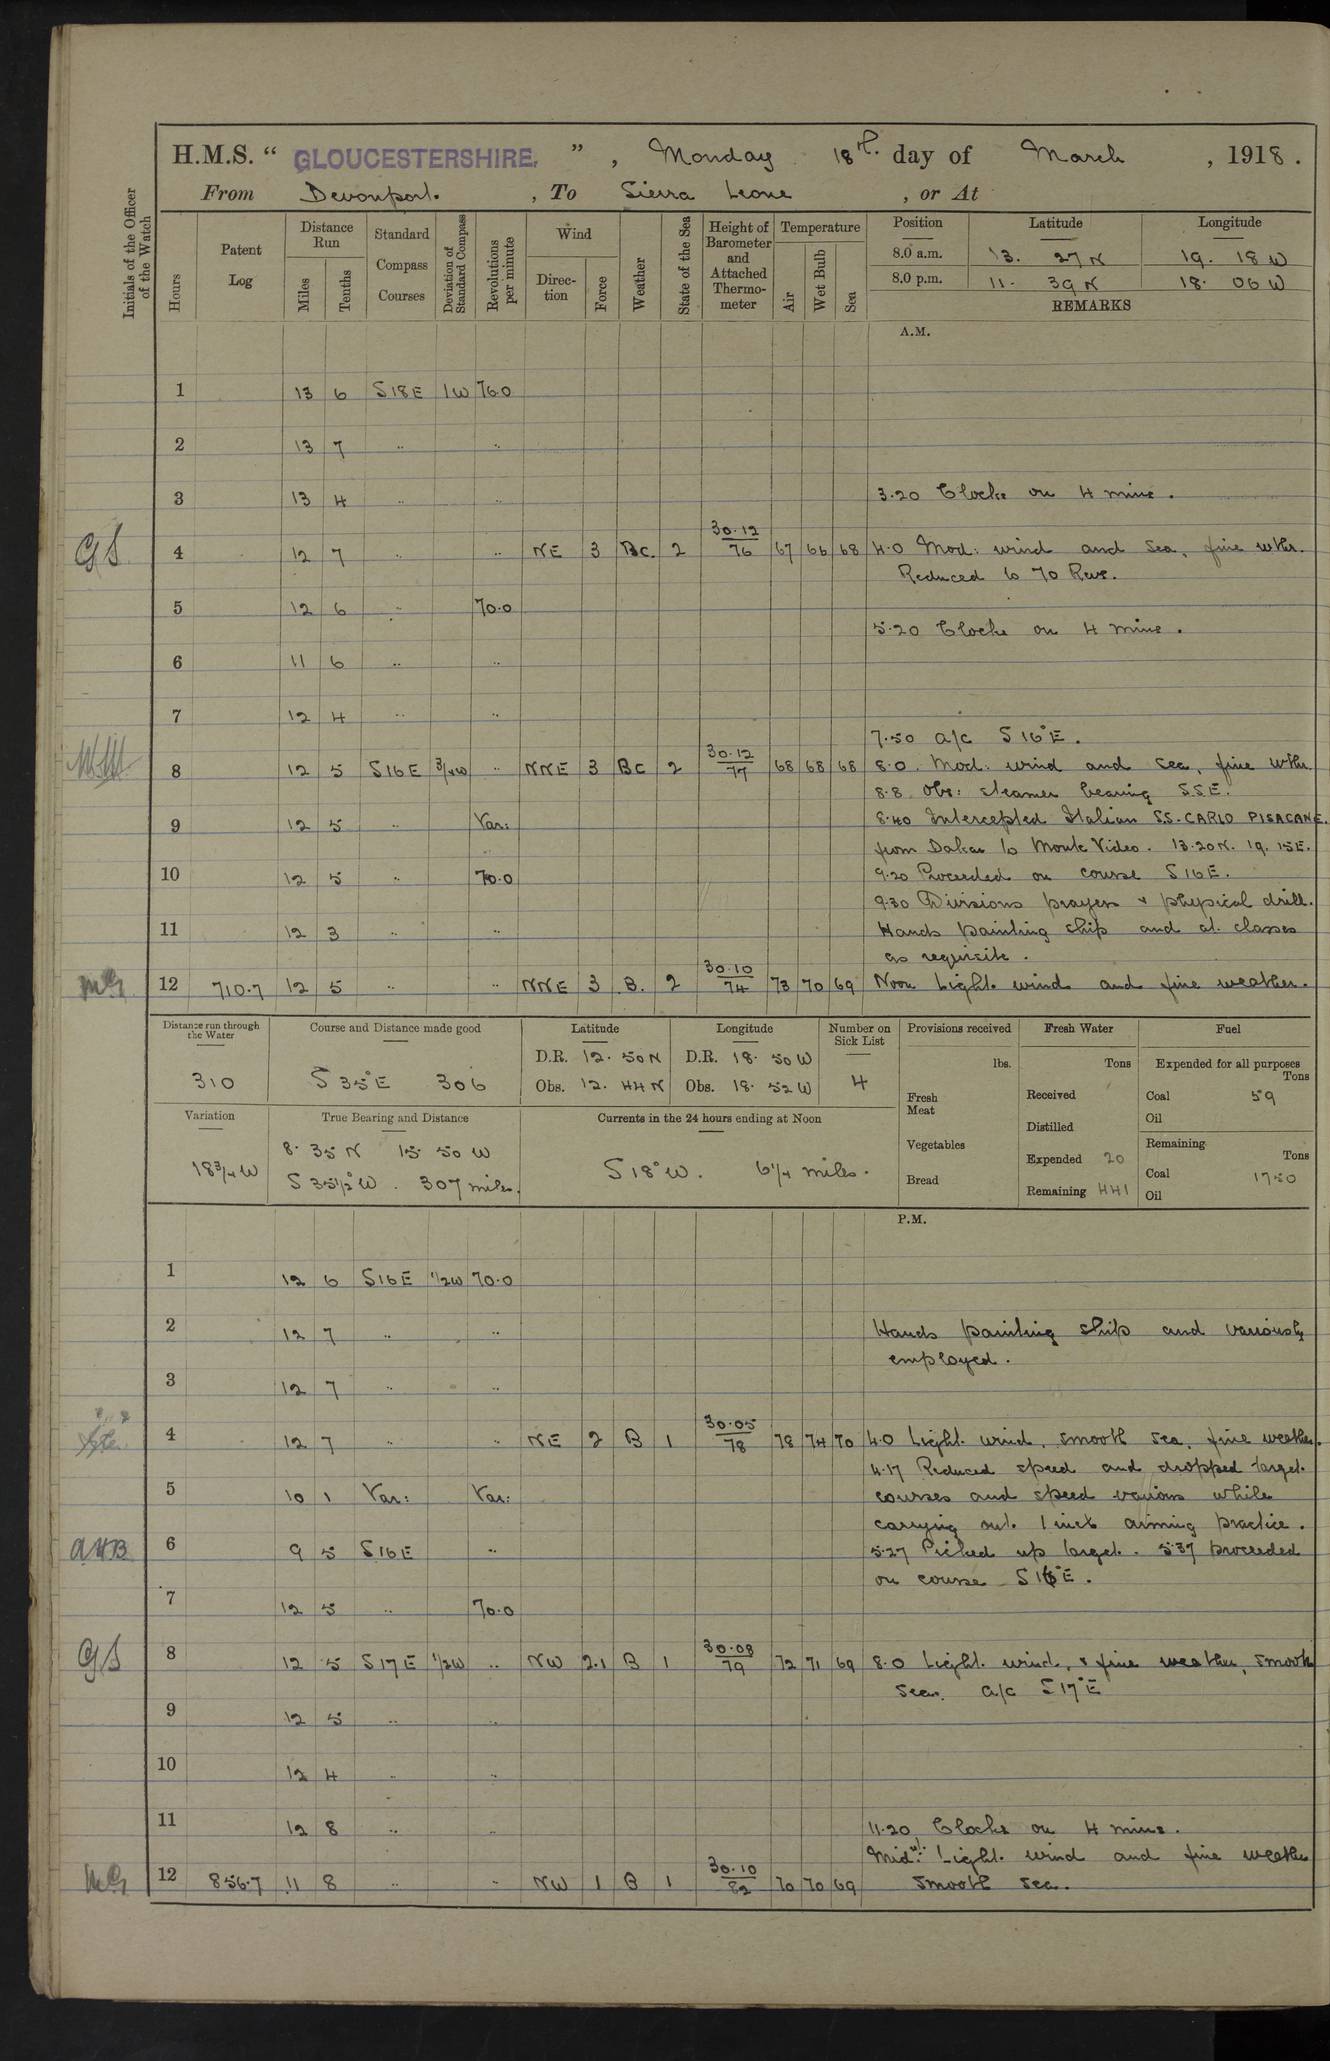 H.M.S. " GLOUCESTERSHIRE. " , Monday 18th. day of March , 1918.
From Devonport. , To Sierra Leone , or At
Initials of the Officer of the Watch
Hours
Patent Log
Distance Run
Miles
Tenths
Standard Compass Courses
Deviation of Standard Compass
Revolutions per minute
Wind
Direc-tion
Force
Weather
State of the Sea
Height of Barometer and Attached Thermo-meter
Temperature
Air
Wet Bulb
Sea
Position Latitude Longitude
8.0 a.m. 13. 27 N 19. 18 W
8.0 p.m. 11. 39 N 18. 06 W
REMARKS
A.M.
1 13 6 S18E 1W 76.0
2 13 7 .. ..
3 13 4 .. .. 3.20 Clocks on 4 mins.
GS 4 12 7 .. .. NE 3 Bc. 2 30.12 76 67 66 68 4.0 Mod: wind and sea, fine wthr.
Reduced to 70 Revs.
5 12 6 .. 70.0
5.20 Clocks on 4 mins.
6 11 6 .. ..
7 12 4 .. ..
7.50 a/c S16°E.
8 12 5 S16E 3/4W .. NNE 3 Bc 2 30.12 77 68 68 68 8.0. Mod: wind and sea, fine wthr.
8.8. Obs: steamer bearing SSE.
9 12 5 .. Var: 8.40 Intercepted Italian S.S. CARLO PISACANE.
from Dakar to Monte Video. 13.20N. 19. 15E.
10 12 5 .. 70.0 9.20 Proceeded on course S16E.
9.30 Divisions prayers & physical drill.
11 12 3 .. .. Hands painting ship and at classes
as requisite.
12 710.7 12 5 .. .. NNE 3 B. 2 30.10 74 73 70 69 Noon Light wind and fine weather.
Distance run through the Water
310
Course and Distance made good
S 35°E 306
Latitude
D.R. 12. 50 N
Obs. 12. 44 N
Longitude
D.R. 18. 50 W
Obs. 18. 52 W
Number on Sick List
4
Variation
18 3/4 W
True Bearing and Distance
8. 35 N 15 50 W
S 35 1/2° W. 307 miles.
Currents in the 24 hours ending at Noon
S 18° W. 6 1/4 miles.
Provisions received
lbs.
Fresh Meat
Vegetables
Bread
Fresh Water
Tons
Received
Distilled
Expended 20
Remaining 441
Fuel
Expended for all purposes
Tons
Coal 59
Oil
Remaining
Tons
Coal 1750
Oil
P.M.
1 12 6 S16E 1/2W 70.0
2 12 7 .. .. Hands painting ship and variously
employed.
3 12 7 .. ..
4 12 7 .. .. NE 2 B 1 30.05 78 78 74 70 4.0 Light wind, smooth sea, fine weather.
4.17 Reduced speed and dropped target.
5 10 1 Var: Var: courses and speed various while
carrying out 1 inch aiming practice.
AHB 6 9 5 S16E .. 5.27 Picked up target. 5.37 proceeded
on course S16°E.
7 12 5 .. 70.0
GS 8 12 5 S17E 1/2W .. NW 2.1 B 1 30.08 79 72 71 69 8.0 Light wind, & fine weather, smooth
sea. a/c S17°E
9 12 5 .. ..
10 12 4 .. ..
11 12 8 .. .. 11.20 Clocks on 4 mins.
Midt. Light wind and fine weather
12 856.7 11 8 .. .. NW 1 B 1 30.10 82 70 70 69 smooth sea.